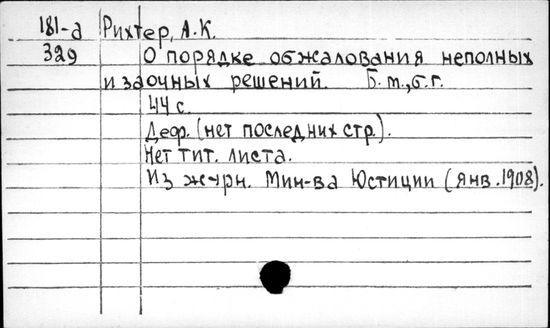 181-а Рихтер, А.К.
329 О порядке обжалования неполных
и заочных решений. Б.м., б.г.
44 с.
Деф. (нет последних стр.).
Нет тит. листа.
Из журн. Мин-ва Юстиции (янв. 1908).